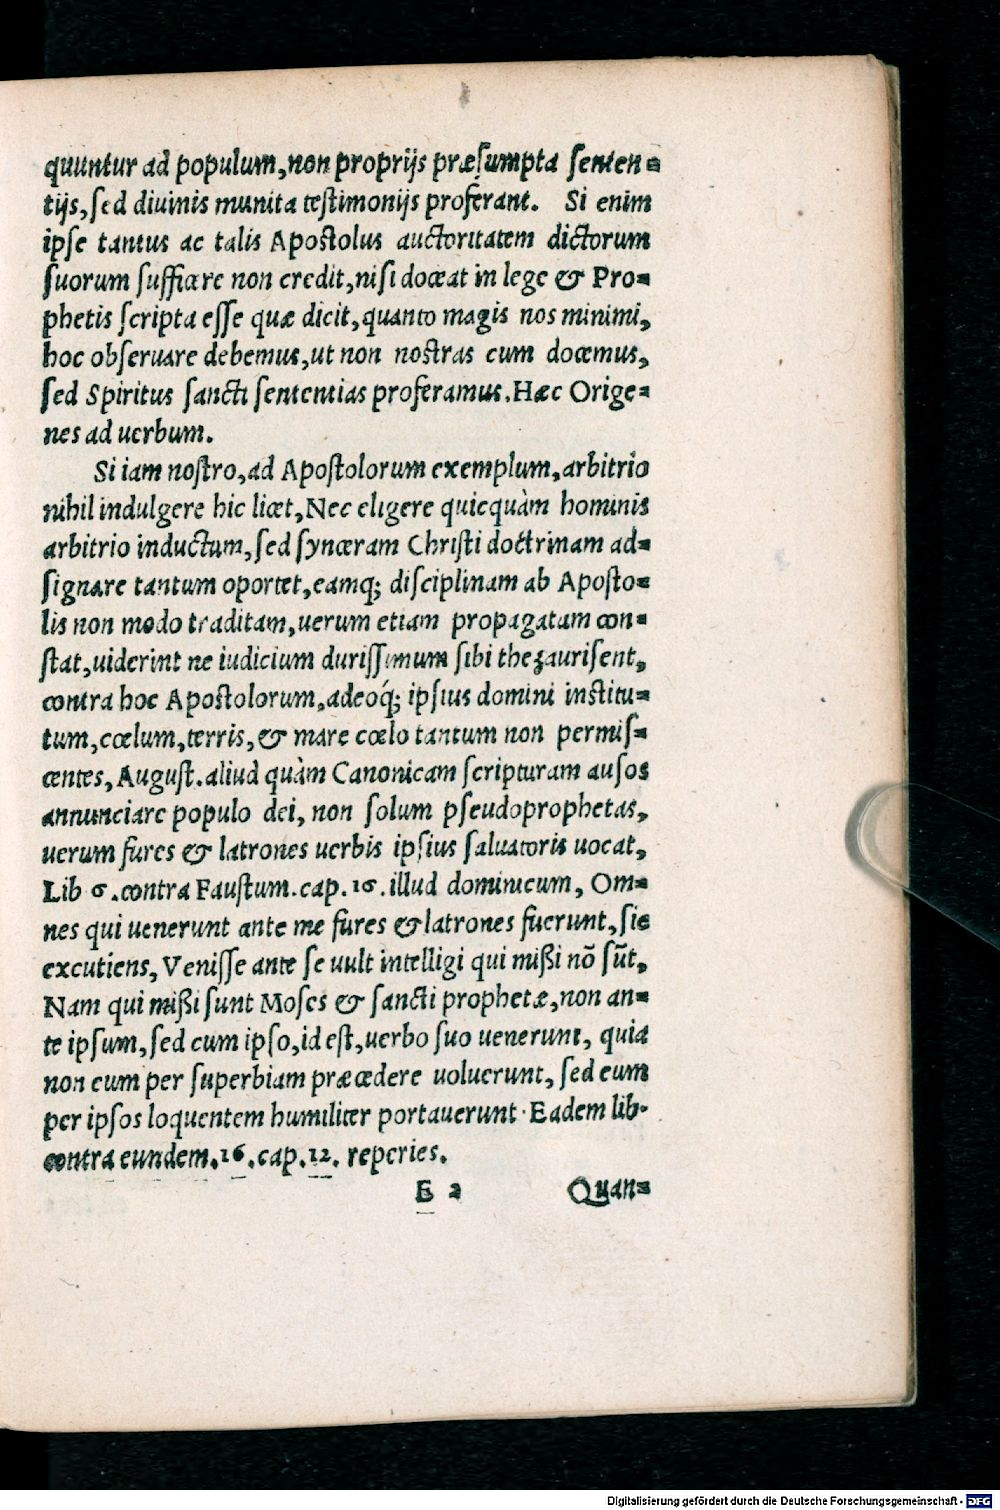 quuntur ad populum, non proprijs præsumpta senten=
tijs, sed diuinis munita testimonijs proferant. Si enim
ipse tantus ac talis Apostolus auctoritatem dictorum
suorum sufficere non credit, nisi doceat in lege & Pro=
phetis scripta esse quæ dicit, quanto magis nos minimi,
hoc obseruare debemus, ut non nostras cum docemus,
sed Spiritus sancti sententias proferamus. Hæc Orige=
nes ad uerbum.
Si iam nostro, ad Apostolorum exemplum, arbitrio
nihil indulgere hic licet, Nec eligere quicquàm hominis
arbitrio inductum, sed synceram Christi doctrinam ad=
signare tantum oportet, eamq; disciplinam ab Aposto=
lis non modo traditam, uerum etiam propagatam con=
stat, uiderint ne iudicium durissimum sibi thezaurisent,
contra hoc Apostolorum, adeoq́; ipsius domini institu=
tum, cœlum, terris, & mare cœlo tantum non permis=
centes, August. aliud quàm Canonicam scripturam ausos
annunciare populo dei, non solum pseudoprophetas,
uerum fures & latrones uerbis ipsius saluatoris uocat,
Lib 6. contra Faustum. cap. 16. illud dominicum, Om=
nes qui uenerunt ante me fures & latrones fuerunt, sic
excutiens, Venisse ante se uult intelligi qui mißi nõ sūt,
Nam qui mißi sunt Moses & sancti prophetæ, non an=
te ipsum, sed cum ipso, id est, uerbo suo uenerunt, quia
non eum per superbiam præcedere uoluerunt, sed eum
per ipsos loquentem humiliter portauerunt. Eadem lib.
contra eundem. 16. cap. 12. reperies.
E 2 Quan=
Digitalisierung gefördert durch die Deutsche Forschungsgemeinschaft - DFG